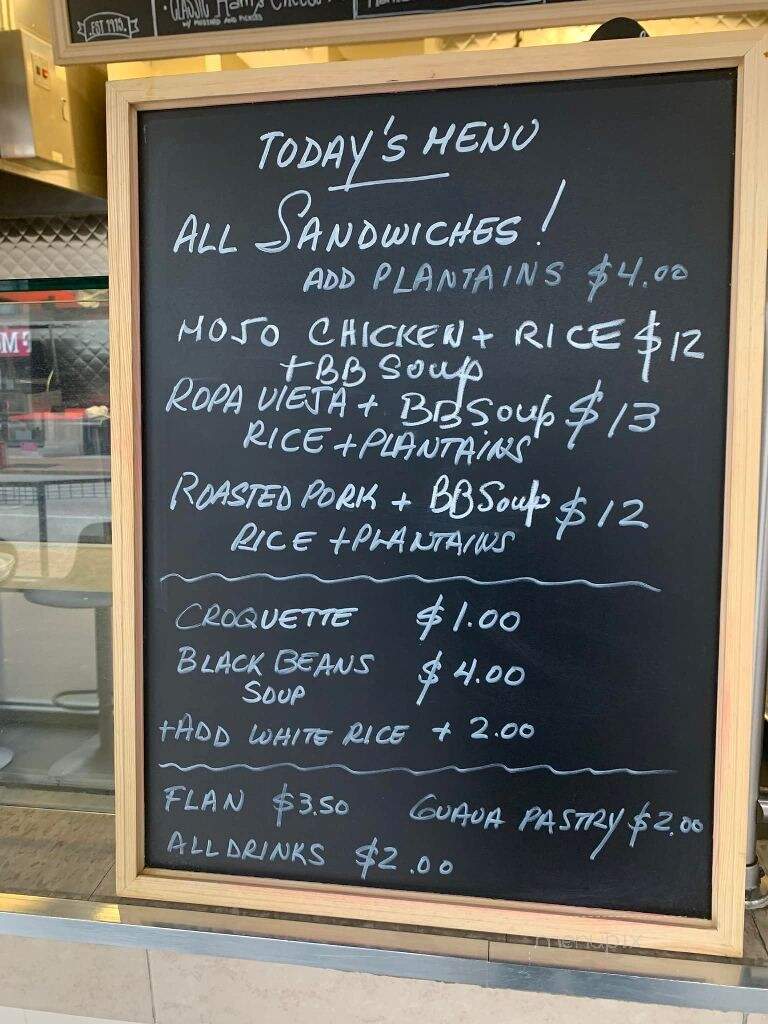 EST 1915.
CLASSIC HAM & CHEESE
W/ MUSTARD AND PICKLES
TODAY'S MENU
ALL SANDWICHES!
ADD PLANTAINS $4.00
MOJO CHICKEN + RICE $12
+BB SOUP
ROPA VIEJA + BB SOUP $13
RICE + PLANTAINS
ROASTED PORK + BB SOUP $12
RICE + PLANTAINS
CROQUETTE $1.00
BLACK BEANS $4.00
SOUP
+ADD WHITE RICE + 2.00
FLAN $3.50 GUAVA PASTRY $2.00
ALL DRINKS $2.00
menupix